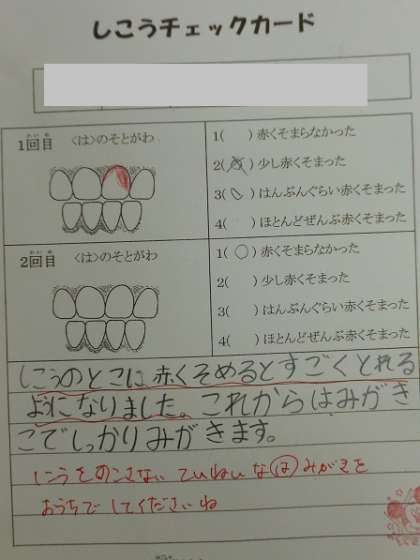 しこうチェックカード
1回目 〈は〉のそとがわ
1( )赤くそまらなかった
2( )少し赤くそまった
3(○)はんぶんぐらい赤くそまった
4( )ほとんどぜんぶ赤くそまった
2回目 〈は〉のそとがわ
1(○)赤くそまらなかった
2( )少し赤くそまった
3( )はんぶんぐらい赤くそまった
4( )ほとんどぜんぶ赤くそまった
しこうのとこに赤くそめるとすごくとれる
ようになりました。これからはみがき
こでしっかりみがきます。
しこうをのこさない ていねいな はみがきを
おうちで してくださいね